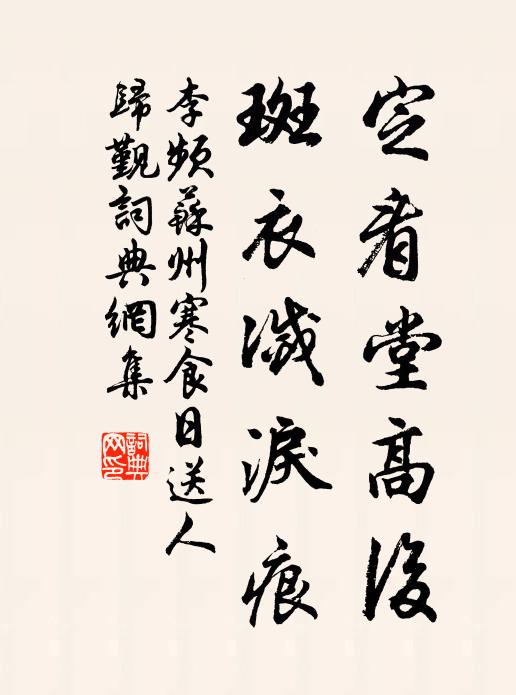 定看堂高後
斑衣滅淚痕
李頻蘇州寒食日送人
歸覲詞典網集
詞典
网印